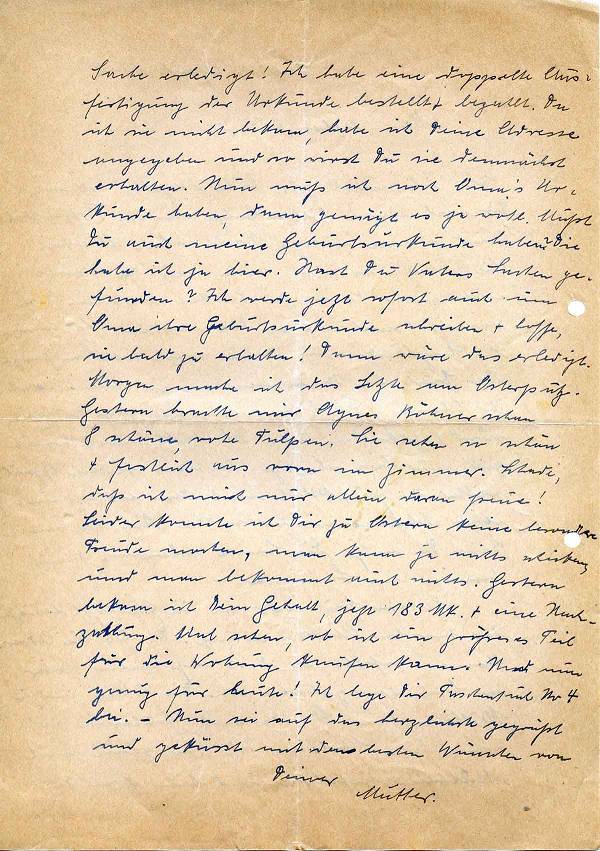 Sache erledigt! Ich habe eine doppelte Aus-
fertigung der Urkunde bestellt + bezahlt. Da
ich sie nicht bekam, habe ich Deine Adresse
angegeben und so wirst Du sie demnächst
erhalten. Nun muß ich noch Oma's Ur-
kunde haben, dann genügt es ja wohl. Mußt
Du auch meine Geburtsurkunde haben? Die
habe ich ja hier. Hast Du Vaters Sachen ge-
funden? Ich werde jetzt sofort auch um
Oma ihre Geburtsurkunde schreiben + hoffe,
sie bald zu erhalten! Dann wäre das erledigt.
Morgen mache ich das Letzte am Osterputz.
Gestern brachte mir Agnes Böhmer schon
8 schöne, rote Tulpen. Sie sehen so schön
+ festlich aus vorn im Zimmer. Schade,
daß ich mich nur allein daran freue!
Leider konnte ich Dir zu Ostern keine besondere
Freude machen, man kann ja nichts schicken
und man bekommt auch nichts. Gestern
bekam ich Dein Gehalt, jetzt 183 Mk. + eine Nach-
zahlung. Mal sehen, ob ich ein größeres Teil
für die Wohnung kaufen kann. Und nun
genug für heute! Ich lege Dir No 4
bei. - Nun sei auf das herzlichste gegrüßt
und geküsst mit den besten Wünschen von
Deiner
Mutter.